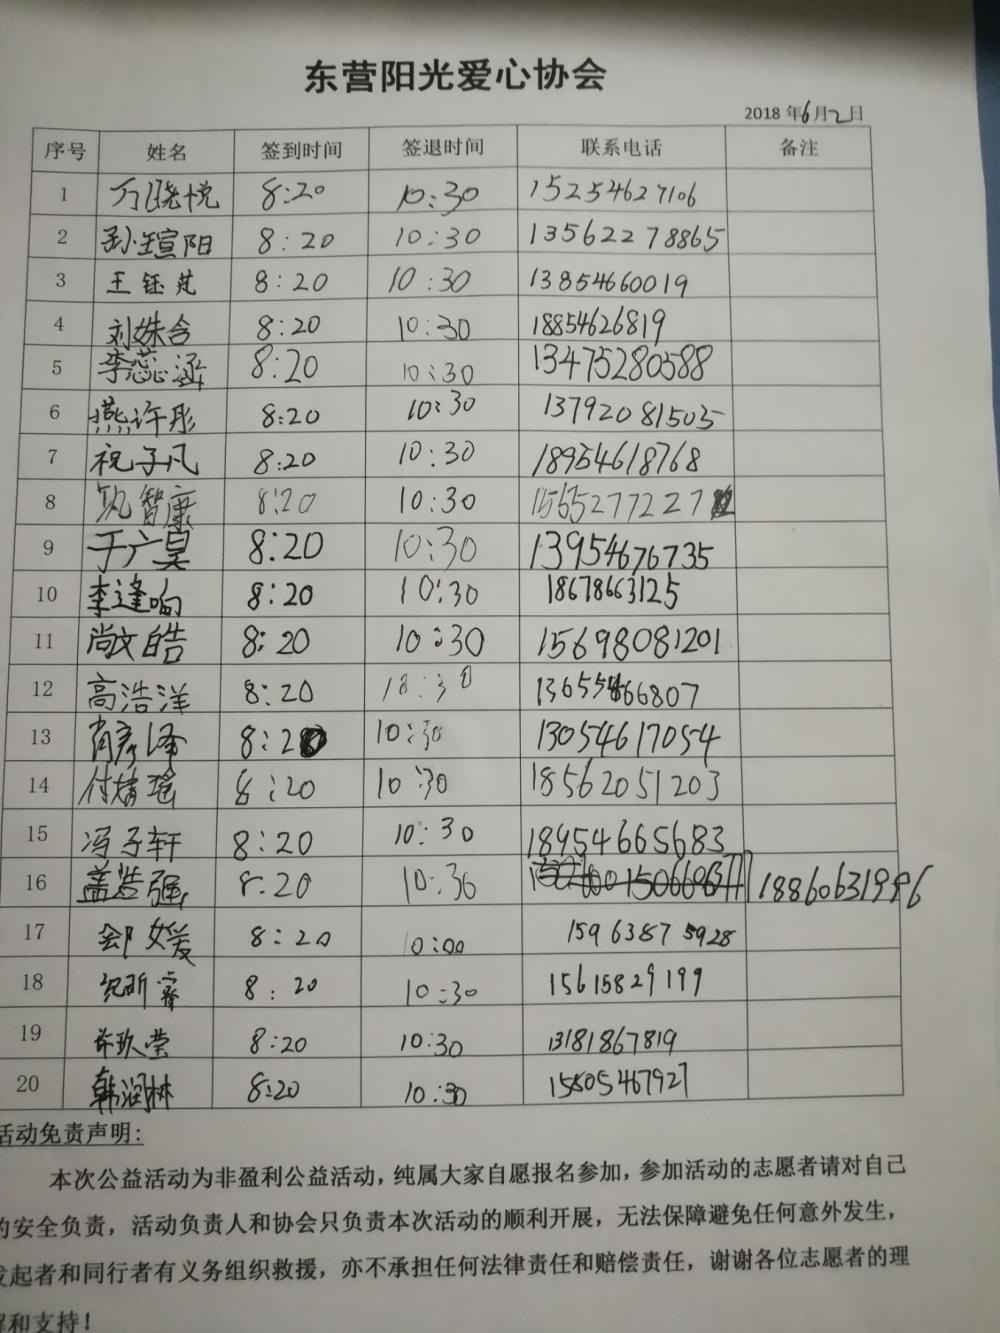 东营阳光爱心协会
2018年6月2日
序号 姓名 签到时间 签退时间 联系电话 备注
1 万晓悦 8:20 10:30 15254627106
2 孙瑄阳 8:20 10:30 13562278865
3 王钰芃 8:20 10:30 13854660019
4 刘姝含 8:20 10:30 18854626819
5 李蕊涵 8:20 10:30 13475280588
6 燕许彤 8:20 10:30 13792081503
7 祝子凡 8:20 10:30 18954618768
8 智康 8:20 10:30 1565277227
9 于广昊 8:20 10:30 13954676735
10 李逢响 8:20 10:30 18678663125
11 尚文皓 8:20 10:30 15698081201
12 高浩洋 8:20 10:30 13655466807
13 肖彦泽 8:20 10:30 13054617054
14 付婧瑶 8:20 10:30 18562051203
15 冯子轩 8:20 10:30 18954665683
16 盖浩强 8:20 10:30 18860631996
17 媛 8:20 10:00 15963875928
18 纪昕睿 8:20 10:30 15615829199
19 许玖莹 8:20 10:30 13181867819
20 韩润林 8:20 10:30 15805467927
活动免责声明:
本次公益活动为非盈利公益活动，纯属大家自愿报名参加，参加活动的志愿者请对自己
的安全负责，活动负责人和协会只负责本次活动的顺利开展，无法保障避免任何意外发生，
发起者和同行者有义务组织救援，亦不承担任何法律责任和赔偿责任，谢谢各位志愿者的理
解和支持！